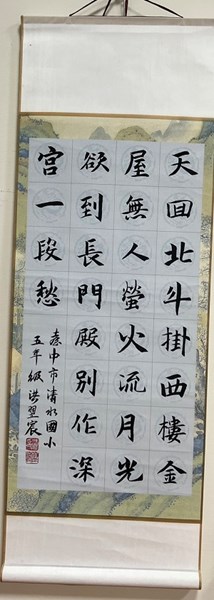 天回北斗掛西樓金
屋無人螢火流月光
欲到長門殿別作深
宮一段愁
臺中市清水國小
五年級洪翌宸